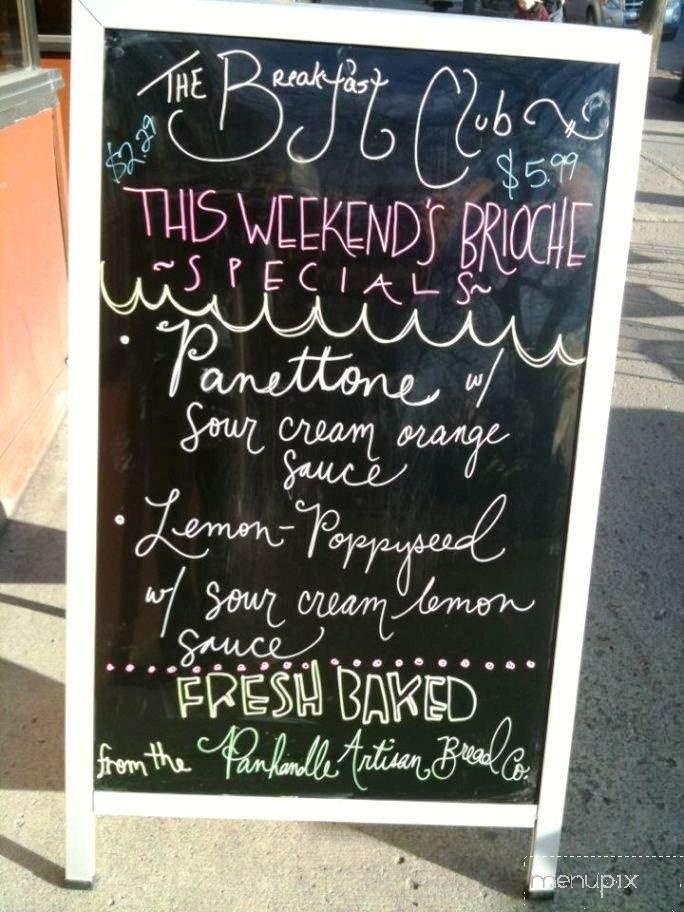 THE Breakfast Club
$2.29
$5.99
THIS WEEKEND'S BRIOCHE
~SPECIALS~
• Panettone w/
sour cream orange
sauce
• Lemon-Poppyseed
w/ sour cream lemon
sauce
FRESH BAKED
from the Panhandle Artisan Bread Co.
menupix